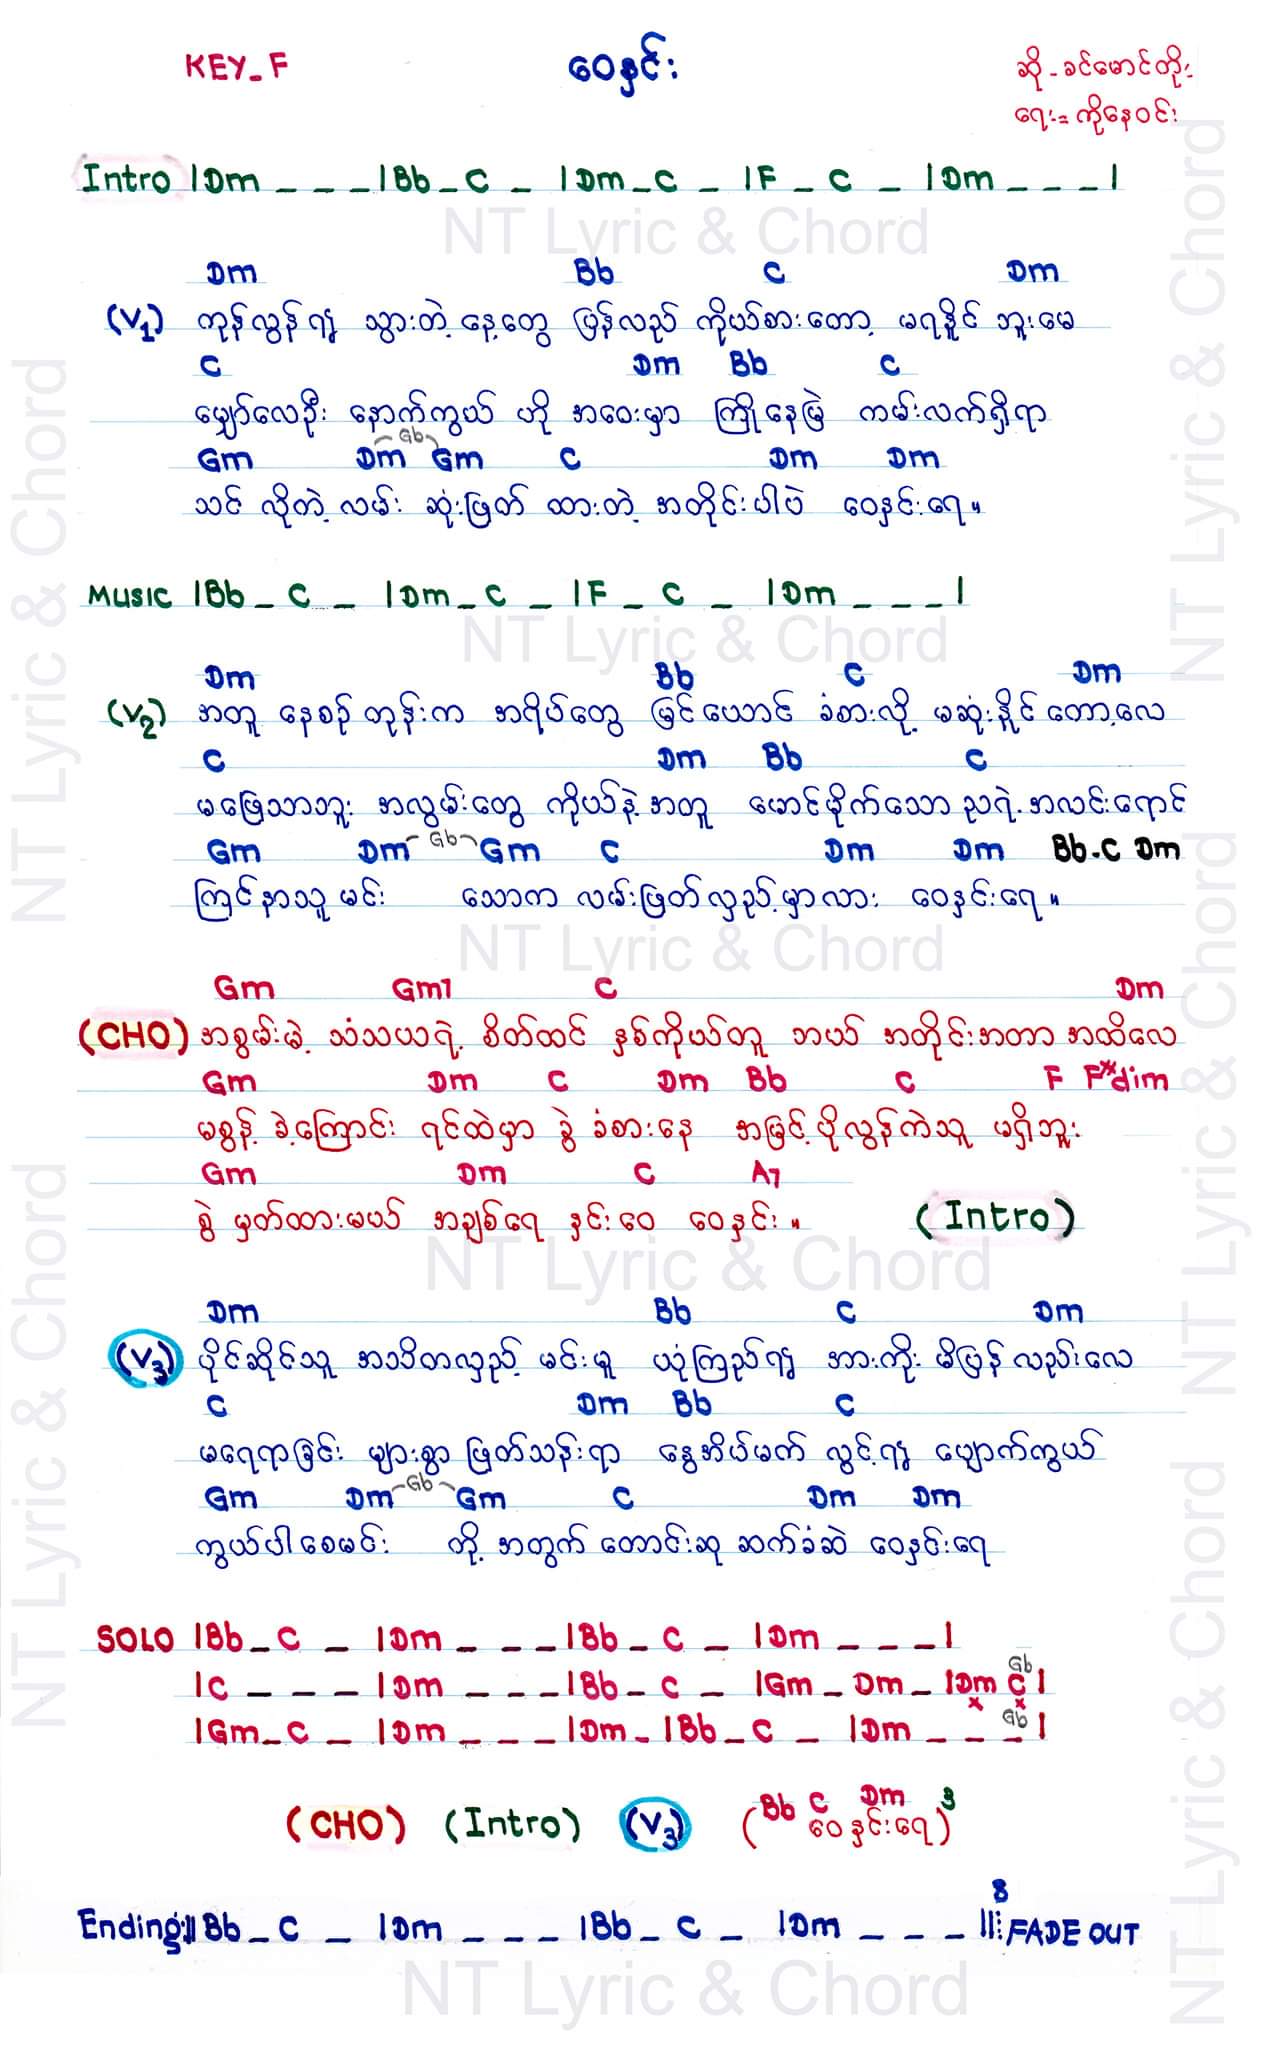 KEY_F ဝေနှင်း ဆို - ခင်မောင်တိုး
ရေး = ကိုနေဝင်း
Intro |Dm _ _ _ |Bb _ C _ |Dm _ C _ |F _ C _ |Dm _ _ _ |
NT Lyric & Chord
Dm Bb C Dm
(V1) ကုန်လွန်၍ သွားတဲ့ နေ့တွေ ပြန်လည် ကိုယ်စားတော့ မရနိုင် ဘူးမေ
C Dm Bb C
မျှော်လေဦး နောက်ကွယ် ဟို အဝေးမှာ ကြိုနေမြဲ ကမ်းလက်ရှိရာ
Gm Dm Gb Gm C Dm Dm
သင် လိုကဲ့ လမ်း ဆုံးဖြတ် ထားတဲ့ အတိုင်းပါပဲ ဝေနှင်းရေ။
MUSIC |Bb _ C _ |Dm _ C _ |F _ C _ |Dm _ _ _ |
NT Lyric & Chord
Dm Bb C Dm
(V2) အတူ နေစဉ် တုန်းက အရိပ်တွေ မြင်ယောင် ခံစားလို့ မဆုံးနိုင် တော့လေ
C Dm Bb C
မပြေသာဘူး အလွမ်းတွေ ကိုယ်နဲ့ အတူ မောင်မိုက်သော ညရဲ့ အလင်းရောင်
Gm Dm Gb Gm C Dm Dm Bb-C Dm
ကြင်နာသူ မင်း သောက လမ်းဖြတ်လှည့်မှာလား ဝေနှင်းရေ။
NT Lyric & Chord
Gm Gm7 C Dm
(CHO) အစွမ်းမဲ့ သံသယရဲ့ စိတ်ထင် နှစ်ကိုယ်တူ ဘယ် အတိုင်းအတာ အထိလေ
Gm Dm C Dm Bb C F F#dim
မစွန့် ခဲ့ကြောင်း ရင်ထဲမှာ ခွဲ ခံစားနေ အမြင့် ပိုလွန်ကဲသူ မရှိဘူး
Gm Dm C A7
စွဲ မှတ်ထားမယ် အချစ်ရေ နှင်းဝေ ဝေနှင်း။ (Intro)
NT Lyric & Chord
Dm Bb C Dm
(V3) ပိုင်ဆိုင်သူ အသိတလှည့် မင်းမူ ယုံကြည်၍ အားကိုး မိပြန် လည်းလေ
C Dm Bb C
မရေရာခြင်း များစွာ ဖြတ်သန်းရာ နွေအိပ်မက် လွင့်၍ ပျောက်ကွယ်
Gm Dm Gb Gm C Dm Dm
ကွယ်ပါစေမင်း တို့ အတွက် တောင်းဆု ဆက်ခံဆဲ ဝေနှင်းရေ
SOLO |Bb _ C _ |Dm _ _ _ |Bb _ C _ |Dm _ _ _ |
|C _ _ _ |Dm _ _ _ |Bb _ C _ |Gm _ Dm _ |Dm C Gb |
|Gm _ C _ |Dm _ _ _ |Dm _ |Bb _ C _ |Dm _ _ _ Gb |
(CHO) (Intro) (V3) (Bb C Dm ဝေနှင်းရေ)3
Ending:|| Bb _ C _ |Dm _ _ _ |Bb _ C _ |Dm _ _ _ ||: 8 FADE OUT
NT Lyric & Chord
NT Lyric & Chord
NT Lyric & Chord
NT Lyric & Chord
NT Lyric & Chord
NT Lyric & Chord